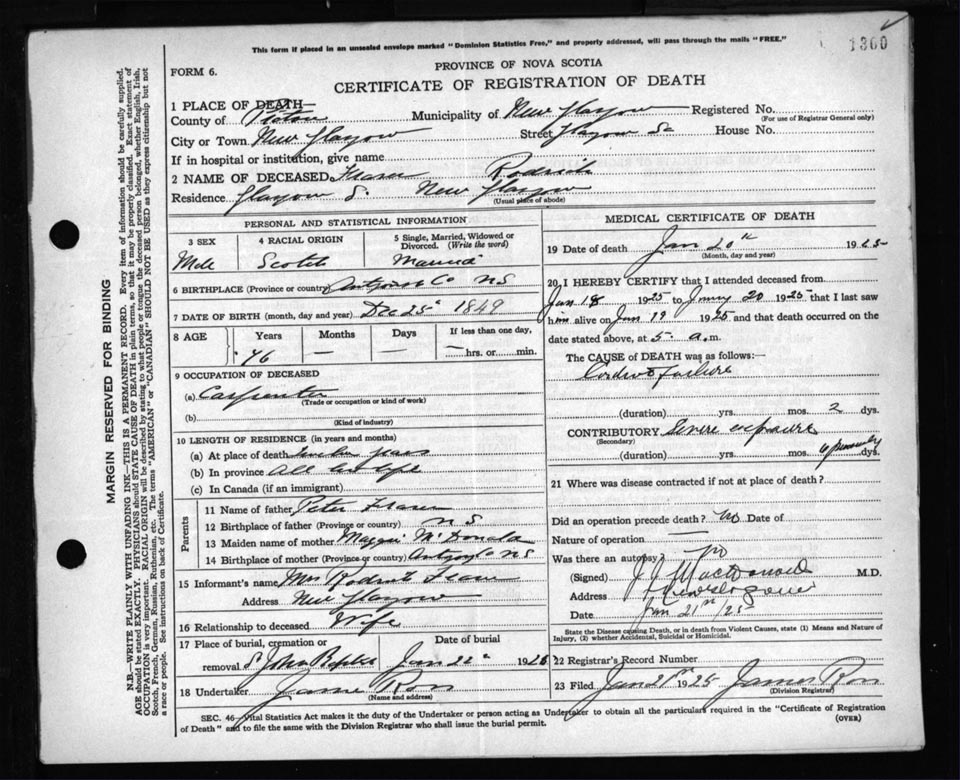 This form if placed in an unsealed envelope marked "Dominion Statistics Free," and properly addressed, will pass through the mails "FREE."
1360
FORM 6.
PROVINCE OF NOVA SCOTIA
CERTIFICATE OF REGISTRATION OF DEATH
1 PLACE OF DEATH—
County of Pictou Municipality of New Glasgow Registered No.
(For use of Registrar General only)
City or Town New Glasgow Street Glasgow St House No.
If in hospital or institution, give name
2 NAME OF DECEASED Fraser Rodrick
Residence Glasgow S. New Glasgow
(Usual place of abode)
PERSONAL AND STATISTICAL INFORMATION
3 SEX 4 RACIAL ORIGIN 5 Single, Married, Widowed or Divorced. (Write the word)
Male Scotch Married
6 BIRTHPLACE (Province or country) Co NS
7 DATE OF BIRTH (month, day and year) Dec 25 1849
8 AGE Years Months Days If less than one day,
76 — — — hrs. or min.
9 OCCUPATION OF DECEASED
(a) Carpenter
(Trade or occupation or kind of work)
(b)
(Kind of industry)
10 LENGTH OF RESIDENCE (in years and months)
(a) At place of death
(b) In province all his life
(c) In Canada (if an immigrant)
Parents
11 Name of father Peter Fraser
12 Birthplace of father (Province or country) N S
13 Maiden name of mother Maggie McDonald
14 Birthplace of mother (Province or country) NS
15 Informant's name Mrs Fraser
Address New Glasgow
16 Relationship to deceased Wife
17 Place of burial, cremation or Date of burial
removal Jan 22 1925
18 Undertaker James Ross
(Name and address)
MEDICAL CERTIFICATE OF DEATH
19 Date of death Jan 20th 1925
(Month, day and year)
20 I HEREBY CERTIFY that I attended deceased from
Jan 18 1925 to 20 1925 that I last saw
him alive on Jan 19 1925 and that death occurred on
date stated above, at 5 a.m.
The CAUSE of DEATH was as follows:—
failure
(duration) yrs. mos. 2 dys.
CONTRIBUTORY Severe exposure
(Secondary)
(duration) yrs. mos. dys.
21 Where was disease contracted if not at place of death?
Did an operation precede death? no Date of
Nature of operation —
Was there an autopsy? no
(Signed) MacDonald M.D.
Address
Date Jan 21st/25
State the Disease causing Death, or in death from Violent Causes, state (1) Means and Nature of Injury, (2) whether Accidental, Suicidal or Homicidal.
22 Registrar's Record Number
23 Filed Jan 21st 1925 James Ross
(Division Registrar)
SEC. 46—Vital Statistics Act makes it the duty of the Undertaker or person acting as Undertaker to obtain all the particulars required in the "Certificate of Registration
of Death" and to file the same with the Division Registrar who shall issue the burial permit. (OVER)
MARGIN RESERVED FOR BINDING
N.B.—WRITE PLAINLY WITH UNFADING INK—THIS IS A PERMANENT RECORD. Every item of information should be carefully supplied.
AGE should be stated EXACTLY. PHYSICIANS should STATE CAUSE OF DEATH in plain terms, so that it may be properly classified. Exact statement of
OCCUPATION is very important. RACIAL ORIGIN will be described by stating to what people or tongue the deceased person belonged, whether English, Irish,
Scotch, French, German, Russian, Ruthenian, etc. The terms "AMERICAN" or "CANADIAN" SHOULD NOT BE USED as they express citizenship but not
a race or people. See instructions on back of Certificate.